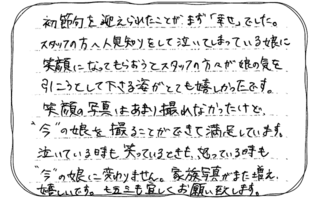 初節句を迎えられたことがまず「幸せ」でした。
スタッフの方へ人見知りをして泣いてしまっている娘に
笑顔になってもらおうとスタッフの方々が娘の気を
引こうとして下さる姿がとても嬉しかったです。
笑顔の写真はあまり撮れなかったけど、
"今"の娘を撮ることができて満足しています。
泣いている時も笑っているときも、怒っている時も
"今"の娘に変わりません。家族写真がまた増え、
嬉しいです。七五三も宜しくお願い致します。